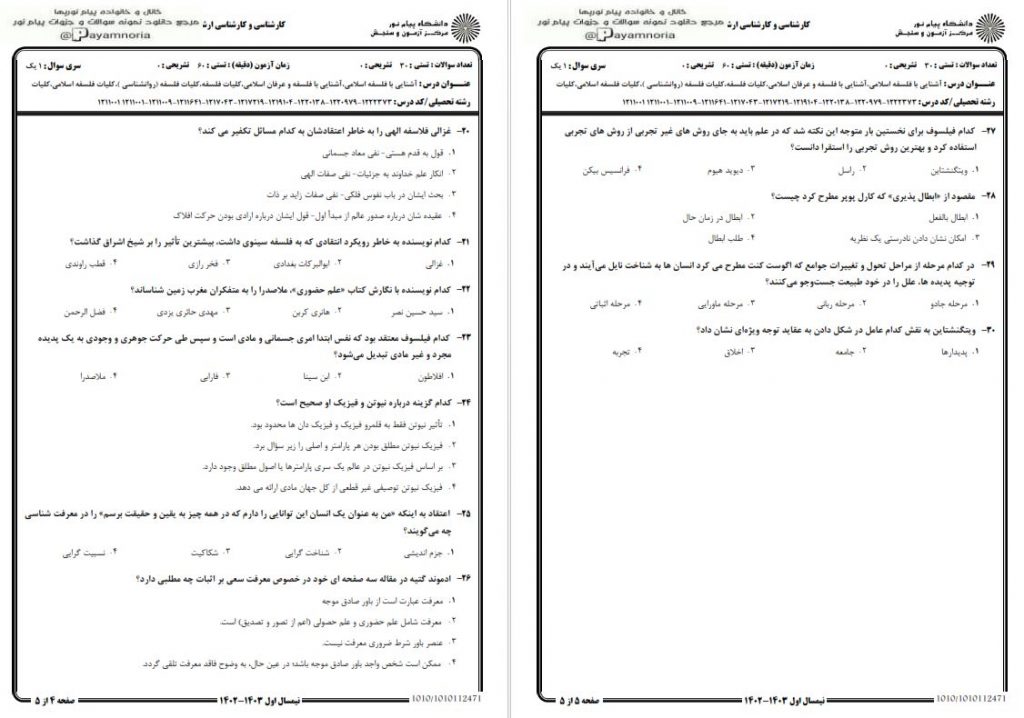 کانال و خانواده پیام نوریها
مرجع دانلود نمونه سوالات و جزوات پیام نور
@Payamnoria
کارشناسی و کارشناسی ارشد
دانشگاه پیام نور
مرکز آزمون و سنجش
تعداد سوالات : تستی : ۳۰ تشریحی : ۰
زمان آزمون (دقیقه) : تستی : ۶۰ تشریحی : ۰
سری سوال : ۱ یک
عنـــوان درس : آشنایی با فلسفه اسلامی،آشنایی با فلسفه و عرفان اسلامی،کلیات فلسفه،کلیات فلسفه (روانشناسی )،کلیات فلسفه اسلامی،کلیات
رشته تحصیلی/کد درس : ۱۲۲۲۳۷۳-۱۲۲۰۹۷۹-۱۲۲۰۱۳۸-۱۲۱۹۱۰۴-۱۲۱۷۲۱۹-۱۲۱۷۰۴۳-۱۲۱۱۶۴۱-۱۲۱۱۰۰۹-۱۲۱۱۰۰۱ ۱۲۱۱۰۰۱
۲۰- غزالی فلاسفه الهی را به خاطر اعتقادشان به کدام مسائل تکفیر می کند؟
۱. قول به قدم هستی- نفی معاد جسمانی
۲. انکار علم خداوند به جزئیات- نفی صفات الهی
۳. بحث ایشان در باب نفوس فلکی- نفی صفات زاید بر ذات
۴. عقیده شان درباره صدور عالم از مبدأ اول- قول ایشان درباره ارادی بودن حرکت افلاک
۲۱- کدام نویسنده به خاطر رویکرد انتقادی که به فلسفه سینوی داشت، بیشترین تأثیر را بر شیخ اشراق گذاشت؟
۱. غزالی ۲. ابوالبرکات بغدادی ۳. فخر رازی ۴. قطب راوندی
۲۲- کدام نویسنده با نگارش کتاب «علم حضوری»، ملاصدرا را به متفکران مغرب زمین شناساند؟
۱. سید حسین نصر ۲. هانری کربن ۳. مهدی حائری یزدی ۴. فضل الرحمن
۲۳- کدام فیلسوف معتقد بود که نفس ابتدا امری جسمانی و مادی است و سپس طی حرکت جوهری و وجودی به یک پدیده
مجرد و غیر مادی تبدیل می‌شود؟
۱. افلاطون ۲. ابن سینا ۳. فارابی ۴. ملاصدرا
۲۴- کدام گزینه درباره نیوتن و فیزیک او صحیح است؟
۱. تأثیر نیوتن فقط به قلمرو فیزیک و فیزیک دان ها محدود بود.
۲. فیزیک نیوتن مطلق بودن هر پارامتر و اصلی را زیر سؤال برد.
۳. بر اساس فیزیک نیوتن در عالم یک سری پارامترها یا اصول مطلق وجود دارد.
۴. فیزیک نیوتن توصیفی غیر قطعی از کل جهان مادی ارائه می دهد.
۲۵- اعتقاد به اینکه «من به عنوان یک انسان این توانایی را دارم که در همه چیز به یقین و حقیقت برسم» را در معرفت شناسی
چه می‌گویند؟
۱. جزم اندیشی ۲. شناخت گرایی ۳. شکاکیت ۴. نسبیت گرایی
۲۶- ادموند گتیه در مقاله سه صفحه ای خود در خصوص معرفت سعی بر اثبات چه مطلبی دارد؟
۱. معرفت عبارت است از باور صادق موجه
۲. معرفت شامل علم حضوری و علم حصولی (اعم از تصور و تصدیق) است.
۳. عنصر باور شرط ضروری معرفت نیست.
۴. ممکن است شخص واجد باور صادق موجه باشد؛ در عین حال، به وضوح فاقد معرفت تلقی گردد.
صفحه ۴ از ۵
نیمسال اول ۱۴۰۳-۱۴۰۲
1010/1010112471
کانال و خانواده پیام نوریها
مرجع دانلود نمونه سوالات و جزوات پیام نور
@Payamnoria
کارشناسی و کارشناسی ارشد
دانشگاه پیام نور
مرکز آزمون و سنجش
تعداد سوالات : تستی : ۳۰ تشریحی : ۰
زمان آزمون (دقیقه) : تستی : ۶۰ تشریحی : ۰
سری سوال : ۱ یک
عنـــوان درس : آشنایی با فلسفه اسلامی،آشنایی با فلسفه و عرفان اسلامی،کلیات فلسفه،کلیات فلسفه (روانشناسی )،کلیات فلسفه اسلامی،کلیات
رشته تحصیلی/کد درس : ۱۲۲۲۳۷۳-۱۲۲۰۹۷۹-۱۲۲۰۱۳۸-۱۲۱۹۱۰۴-۱۲۱۷۲۱۹-۱۲۱۷۰۴۳-۱۲۱۱۶۴۱-۱۲۱۱۰۰۹-۱۲۱۱۰۰۱ ۱۲۱۱۰۰۱
۲۷- کدام فیلسوف برای نخستین بار متوجه این نکته شد که در علم باید به جای روش های غیر تجربی از روش های تجربی
استفاده کرد و بهترین روش تجربی را استقرا دانست؟
۱. ویتگنشتاین ۲. راسل ۳. دیوید هیوم ۴. فرانسیس بیکن
۲۸- مقصود از «ابطال پذیری» که کارل پوپر مطرح کرد چیست؟
۱. ابطال بالفعل ۲. ابطال در زمان حال
۳. امکان نشان دادن نادرستی یک نظریه ۴. طلب ابطال
۲۹- در کدام مرحله از مراحل تحول و تغییرات جوامع که اگوست کنت مطرح می کرد انسان ها به شناخت نایل می‌آیند و در
توجیه پدیده ها، علل را در خود طبیعت جست‌وجو می‌کنند؟
۱. مرحله جادو ۲. مرحله ربانی ۳. مرحله ماورایی ۴. مرحله اثباتی
۳۰- ویتگنشتاین به نقش کدام عامل در شکل دادن به عقاید توجه ویژه‌ای نشان داد؟
۱. پدیدارها ۲. جامعه ۳. اخلاق ۴. تجربه
صفحه ۵ از ۵
نیمسال اول ۱۴۰۳-۱۴۰۲
1010/1010112471